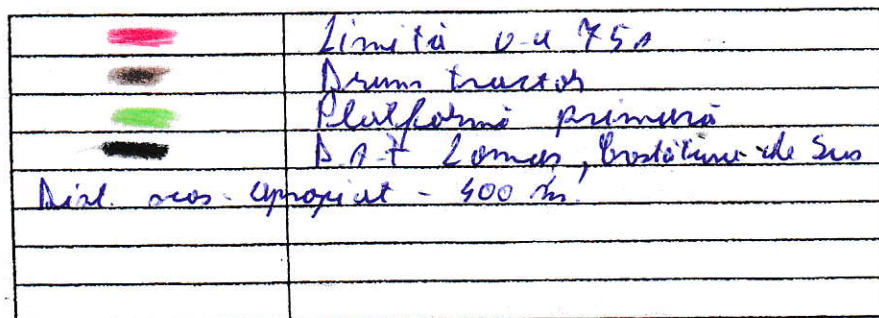 Limită u-a 75A
Drum tractor
Platformă primară
Lomas, de Sus
Dist. scos-apropiat - 400 m.